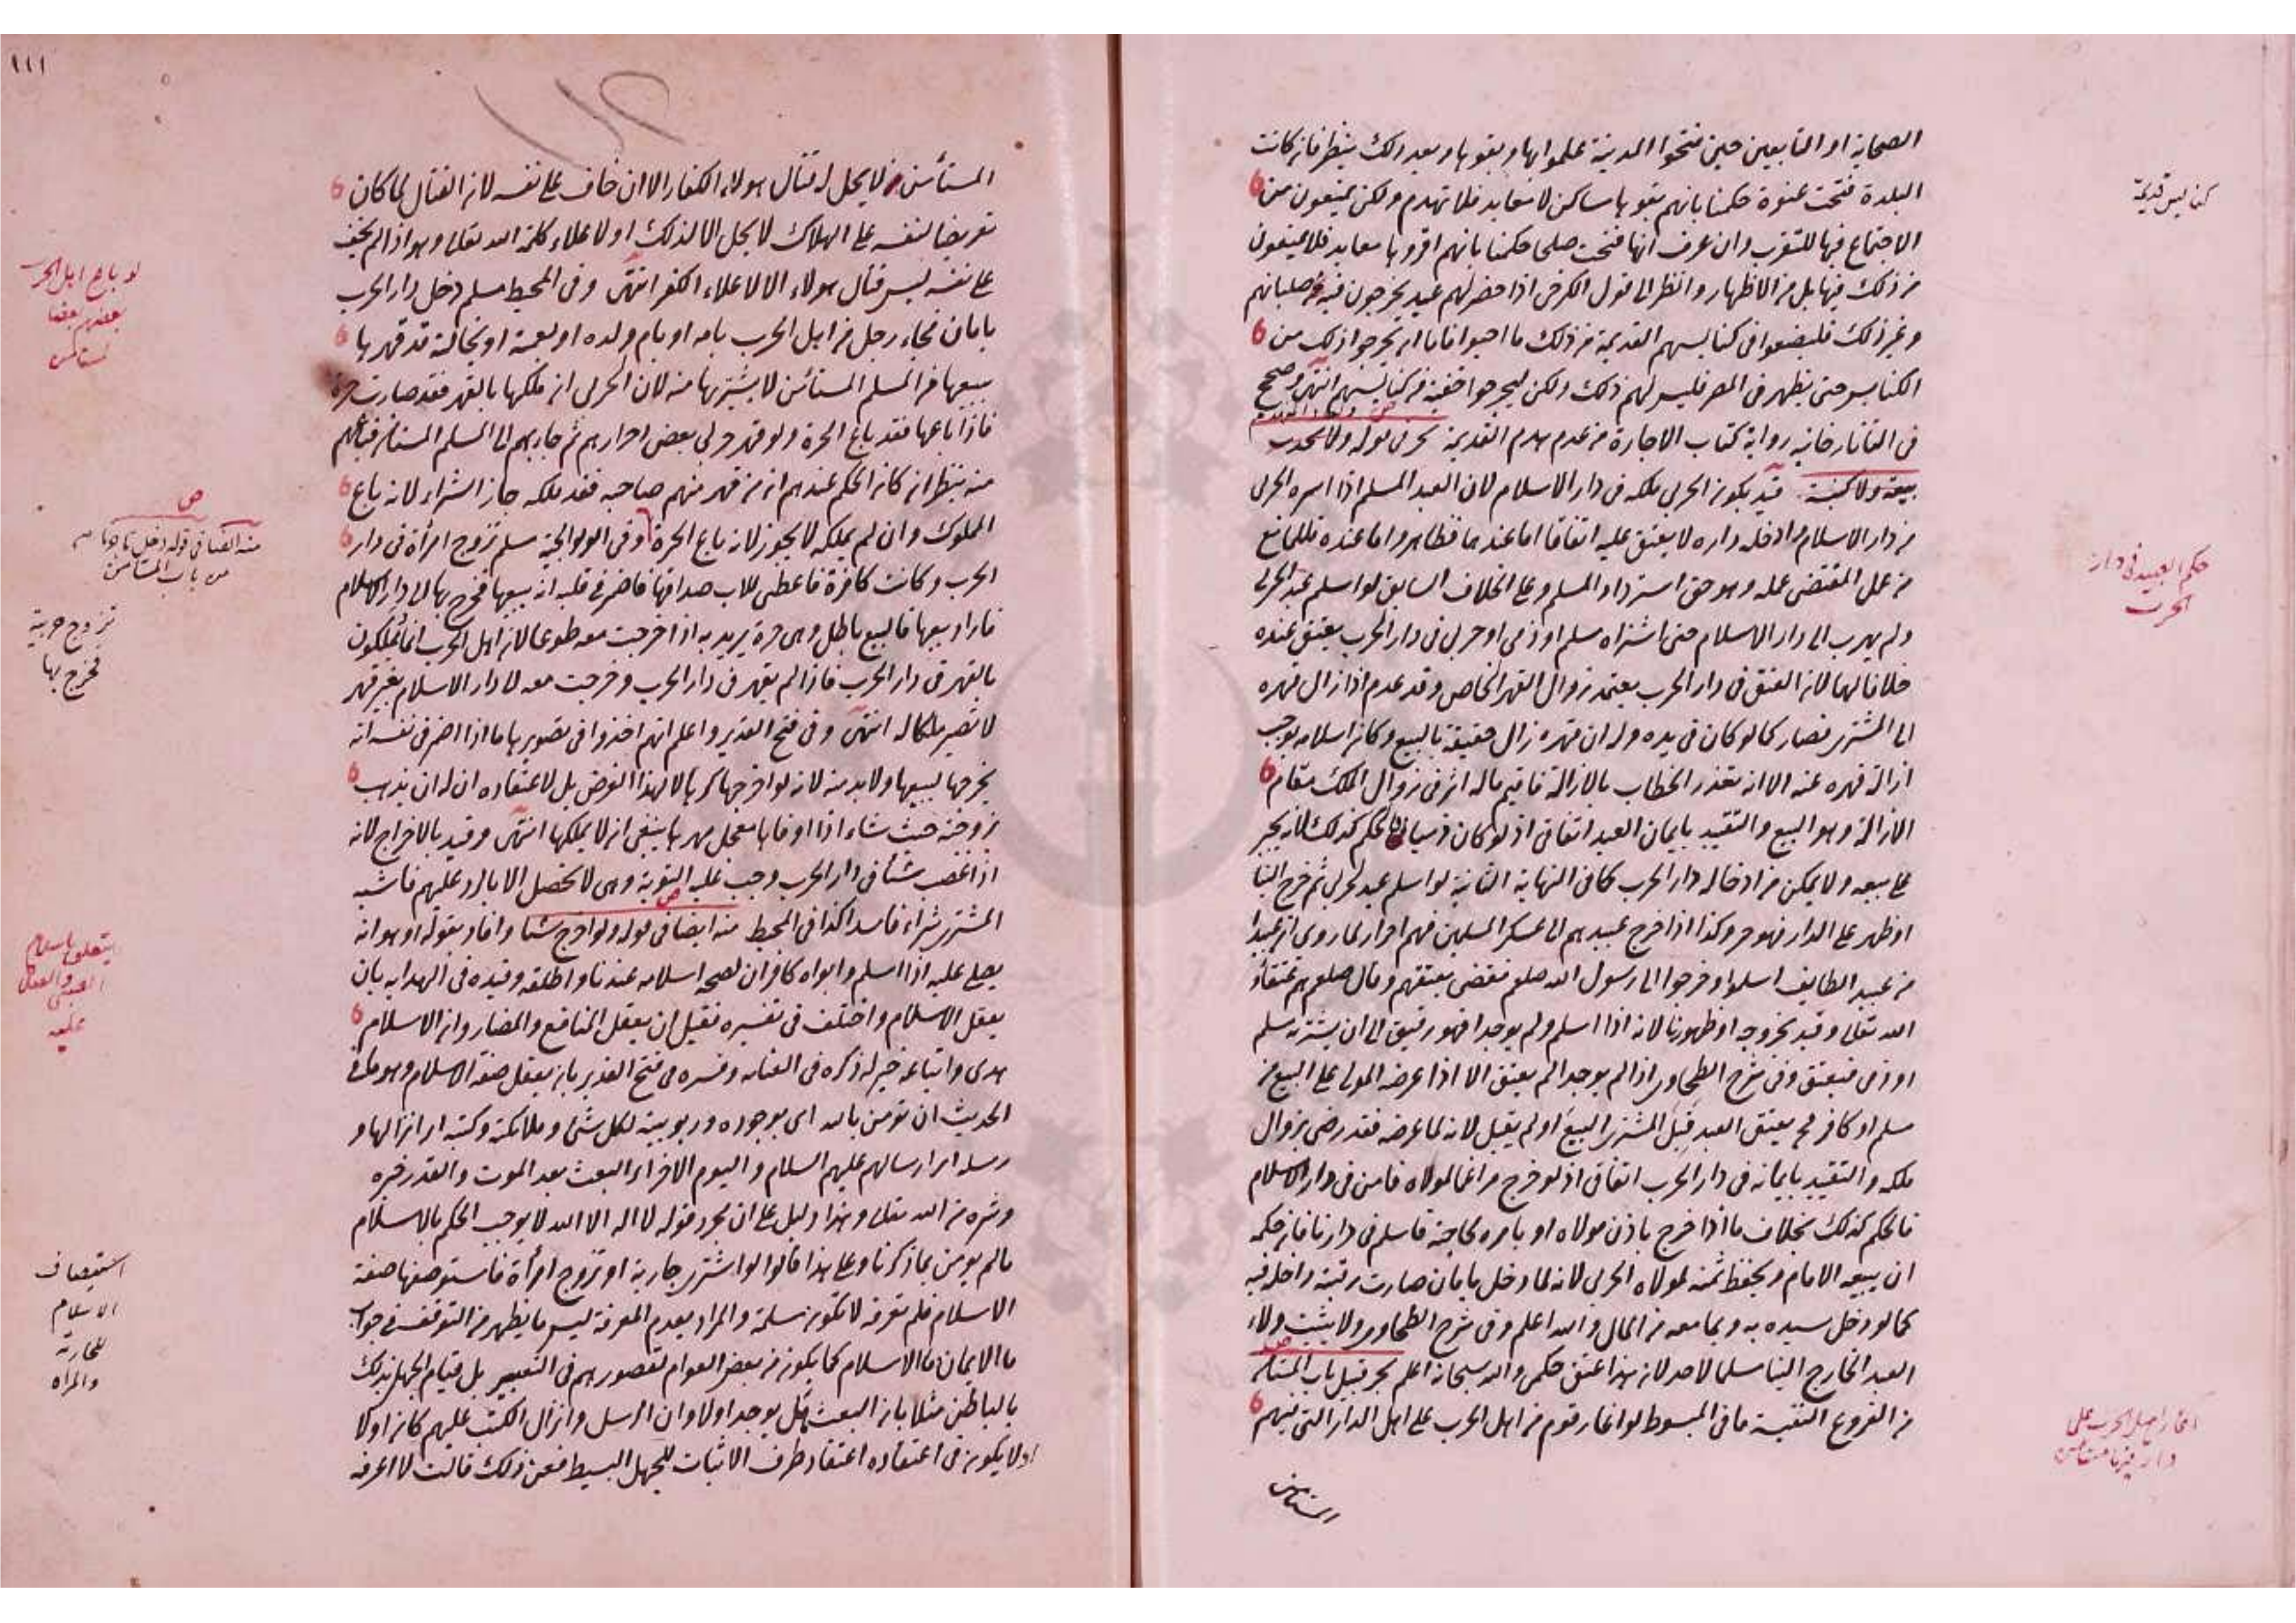 الصحابة او التابعين حين فتحوا المدينة علموا بها وبقوها وبعد ذلك ينظر فان كانت
البلدة فتحت عنوة حكمنا بانهم بقوها مساكن لا معابد فلا تهدم ولكن يمنعون من
الاجتماع فيها للتقرب وان عرف انها فتحت صلحا حكمنا بانهم اقروها معابد فلا يمنعون
من ذلك فيها بل من الاظهار وانظر الى قول الكرخى اذا حضر لهم عيد يخرجون فيه صلبانهم
وغير ذلك فليضعوا فى كنايسهم القديمة من ذلك ما احبوا فاما ان يخرجوا ذلك من
الكنايس حتى يظهر فى المصر فليس لهم ذلك ولكن ليخرجوا خفية من كنايسهم انتهى وصحح
فى التاتارخانيه رواية كتاب الاجارة من عدم هدم القديمة بحر فى قوله ولا يحدث
بيعة ولا كنيسة قيد بكون الحربى ملكه فى دار الاسلام لان العبد المسلم اذا اسره الحربى
من دار الاسلام وادخله داره لا يعتق عليه اتفاقا اما عندهما فظاهر واما عنده فللمانع
من عمل المقتضى عمله وهو حق استرداد المسلم وعلى الخلاف السابق لو اسلم عبد الحربى
ولم يهرب الى دار الاسلام حتى اشتراه مسلم او ذمى او حربى فى دار الحرب يعتق عنده
خلافا لهما لان العتق فى دار الحرب يعتمد زوال القهر الخاص وقد عدم اذا زال قهره
الى المشترى فصار كما لو كان فى يده وله ان قهره زال حقيقة بالبيع وكان اسلامه يوجب
ازالة قهره عنه الا انه تعذر الخطاب بالازالة فاقيم ماله اثر فى زوال الملك مقام
الازالة وهو البيع والتقييد بايمان العبد اتفاقى اذ لو كان ذميا فالحكم كذلك لانه يجبر
على بيعه ولا يمكن من ادخاله دار الحرب كما فى النهاية الثانية لو اسلم عبد لحربى ثم خرج الينا
او ظهر على الدار فهو حر وكذا اذا خرج عبيدهم الى عسكر المسلمين فهم احرار لما روى ان عبيدا
من عبيد الطايف اسلموا وخرجوا الى رسول الله صلعم فقضى بعتقهم وقال صلعم هم عتقاء
الله تعالى وقيد بخروجه او ظهورنا لانه اذا اسلم ولم يوجدا فهو رقيق الى ان يشتريه مسلم
او ذمى فيعتق وفى شرح الطحاوى اذا لم يوجدا لم يعتق الا اذا عرضه المولى على البيع من
مسلم او كافر فح يعتق العبد قبل المشترى البيع او لم يقبل لانه لما عرضه فقد رضى بزوال
ملكه والتقييد بايمانه فى دار الحرب اتفاقى اذ لو خرج مراغما لمولاه فامن فى دار الاسلام
فالحكم كذلك بخلاف ما اذا خرج باذن مولاه او بامره لحاجة فاسلم فى دارنا فان حكمه
ان يبيعه الامام ويحفظ ثمنه لمولاه الحربى لانه لما دخل بامان صارت رقبته داخلة فيه
كما لو دخل سيده به وبما معه من المال والله اعلم وفى شرح الطحاوى ولا يثبت ولاء
العبد الخارج الينا مسلما لاحد لان هذا عتق حكمى والله سبحانه اعلم بحر قبيل باب المستأمن
من الفروع النفيسة ما فى المبسوط لو اغار قوم من اهل الحرب على اهل الدار التى فيهم
المستأمن
كنايس قديمة
حكم العبيد فى دار
الحرب
اغار اهل الحرب على
دار فيها مستأمن
١١١
المستأمن لا يحل له قتال هولاء الكفار الا ان خاف على نفسه لان القتال لما كان
تعريضا لنفسه على الهلاك لا يحل الا لذلك او لاعلاء كلمة الله تعالى وهو اذا لم يخف
على نفسه ليس قتال هولاء الا لاعلاء الكفر انتهى وفى المحيط مسلم دخل دار الحرب
بامان فجاء رجل من اهل الحرب بامه او بام ولده او بعمته او بخالته قد قهرها
يبيعها من المسلم المستأمن لا يشتريها منه لان الحربى ان ملكها بالقهر فقد صارت حرة
فاذا باعها فقد باع الحرة ولو قهر حربى بعض احرارهم ثم جاء بهم الى المسلم المستأمن فباعهم
منه ينظر ان كان الحكم عندهم ان من قهر منهم صاحبه فقد ملكه جاز الشراء لانه باع
المملوك وان لم يملكه لا يجوز لانه باع الحرة وفى الولوالجية مسلم تزوج امرأة فى دار
الحرب وكانت كافرة فاعطى للاب صداقها فاضمر فى قلبه انه يبيعها فخرج بها الى دار الاسلام
فاراد بيعها فالبيع باطل وهى حرة يريد به اذا خرجت معه طوعا لان اهل الحرب انما يملكون
بالقهر فى دار الحرب فاذا لم يقهر فى دار الحرب وخرجت معه الى دار الاسلام بغير قهر
لا تصير ملكا له انتهى وفى فتح القدير واعلم انهم اخذوا فى تصويرها ما اذا اضمر فى نفسه انه
يخرجها ليبيعها ولا بد منه لانه لو اخرجها كرها لا لهذا الغرض بل لاعتقاده ان له ان يذهب
بزوجته حيث شاء اذا اوفاها معجل مهرها ينبغى ان لا يملكها انتهى وقيد بالاخراج لانه
اذا غصب شيأ فى دار الحرب وجب عليه التوبة وهى لا تحصل الا بالرد عليهم فاشبه
المشترى شراء فاسدا كذا فى المحيط منه ايضا فى قوله ولو اخرج شيا وافاد بقوله او هو انه
يصلى عليه اذا اسلم وابواه كافران لصحة اسلامه عندنا واطلقه وقيده فى الهدايه بان
يعقل الاسلام واختلف فى تفسيره فقيل ان يعقل المنافع والمضار وان الاسلام
هدى واتباعه خير له ذكره فى العنايه وفسره فى فتح القدير بان يعقل صفة الاسلام وهو ما فى
الحديث ان تؤمن بالله اى بوجوده وربوبيته لكل شئ وملائكته وكتبه اى انزالها و
رسله اى ارسالهم عليهم السلام واليوم الاخر اى البعث بعد الموت والقدر خيره
وشره من الله تعالى وهذا دليل على ان مجرد قوله لا اله الا الله لا يوجب الحكم بالاسلام
ما لم يومن بما ذكرنا وعلى هذا قالوا لو اشترى جارية او تزوج امرأة فاستوصفها صفة
الاسلام فلم تعرفه لا تكون مسلمة والمراد بعدم المعرفة ليس ما يظهر من التوقف فى جواب
ما الايمان ما الاسلام كما يكون من بعض العوام لقصورهم فى التعبير بل قيام الجهل بذلك
بالباطن مثلا بان البعث هل يوجد اولا وان الرسل وانزال الكتب عليهم كان اولا
اولا يكون فى اعتقاده اعتقاد طرف الاثبات للجهل البسيط فعن ذلك قالت لا اعرفه
لو باع اهل الحرب
بعضهم بعضا
لمستأمن
ص
منه ايضا فى قوله دخل تاجرنا
من باب المستأمن
تزوج حربية
فخرج بها
يتعلق باسلام
الصبى والصلاة
عليه
استيصاف
الاسلام
للجارية
والمراه